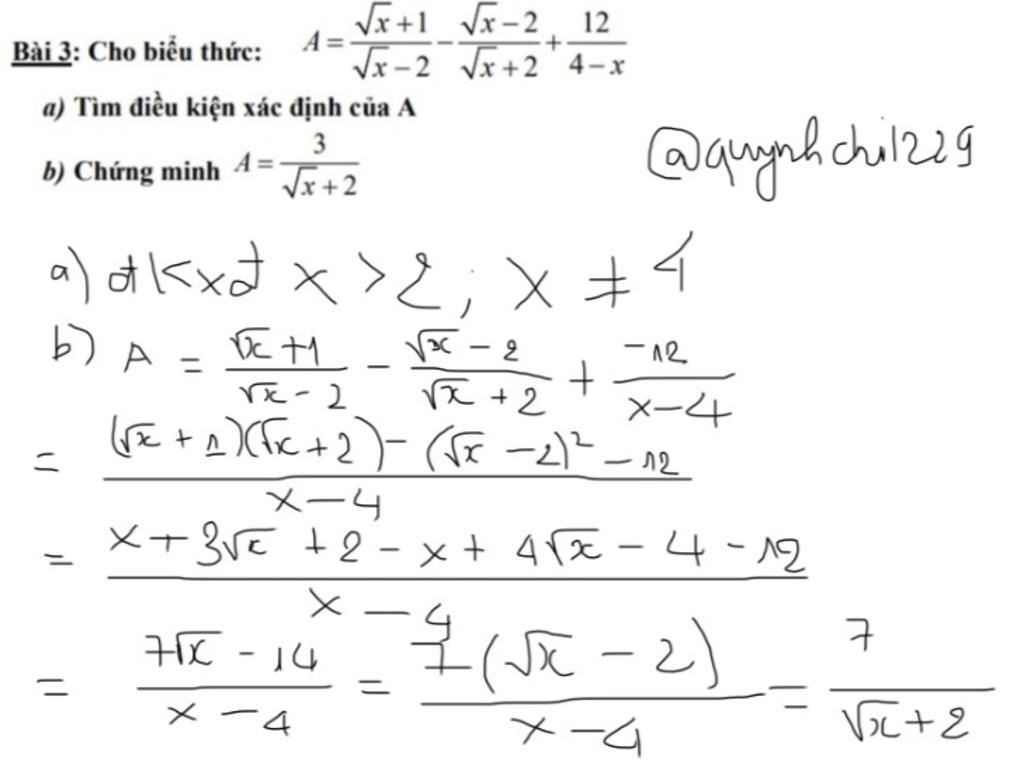 Bài 3: Cho biểu thức: A = \frac{\sqrt{x}+1}{\sqrt{x}-2} - \frac{\sqrt{x}-2}{\sqrt{x}+2} + \frac{12}{4-x}
a) Tìm điều kiện xác định của A
b) Chứng minh A = \frac{3}{\sqrt{x}+2}
@quynhchi1229
a) đkxđ x > 2; x ≠ 4
b) A = \frac{\sqrt{x}+1}{\sqrt{x}-2} - \frac{\sqrt{x}-2}{\sqrt{x}+2} + \frac{-12}{x-4}
= \frac{(\sqrt{x}+1)(\sqrt{x}+2) - (\sqrt{x}-2)^2 - 12}{x-4}
= \frac{x + 3\sqrt{x} + 2 - x + 4\sqrt{x} - 4 - 12}{x-4}
= \frac{7\sqrt{x} - 14}{x-4} = \frac{7(\sqrt{x} - 2)}{x-4} = \frac{7}{\sqrt{x}+2}